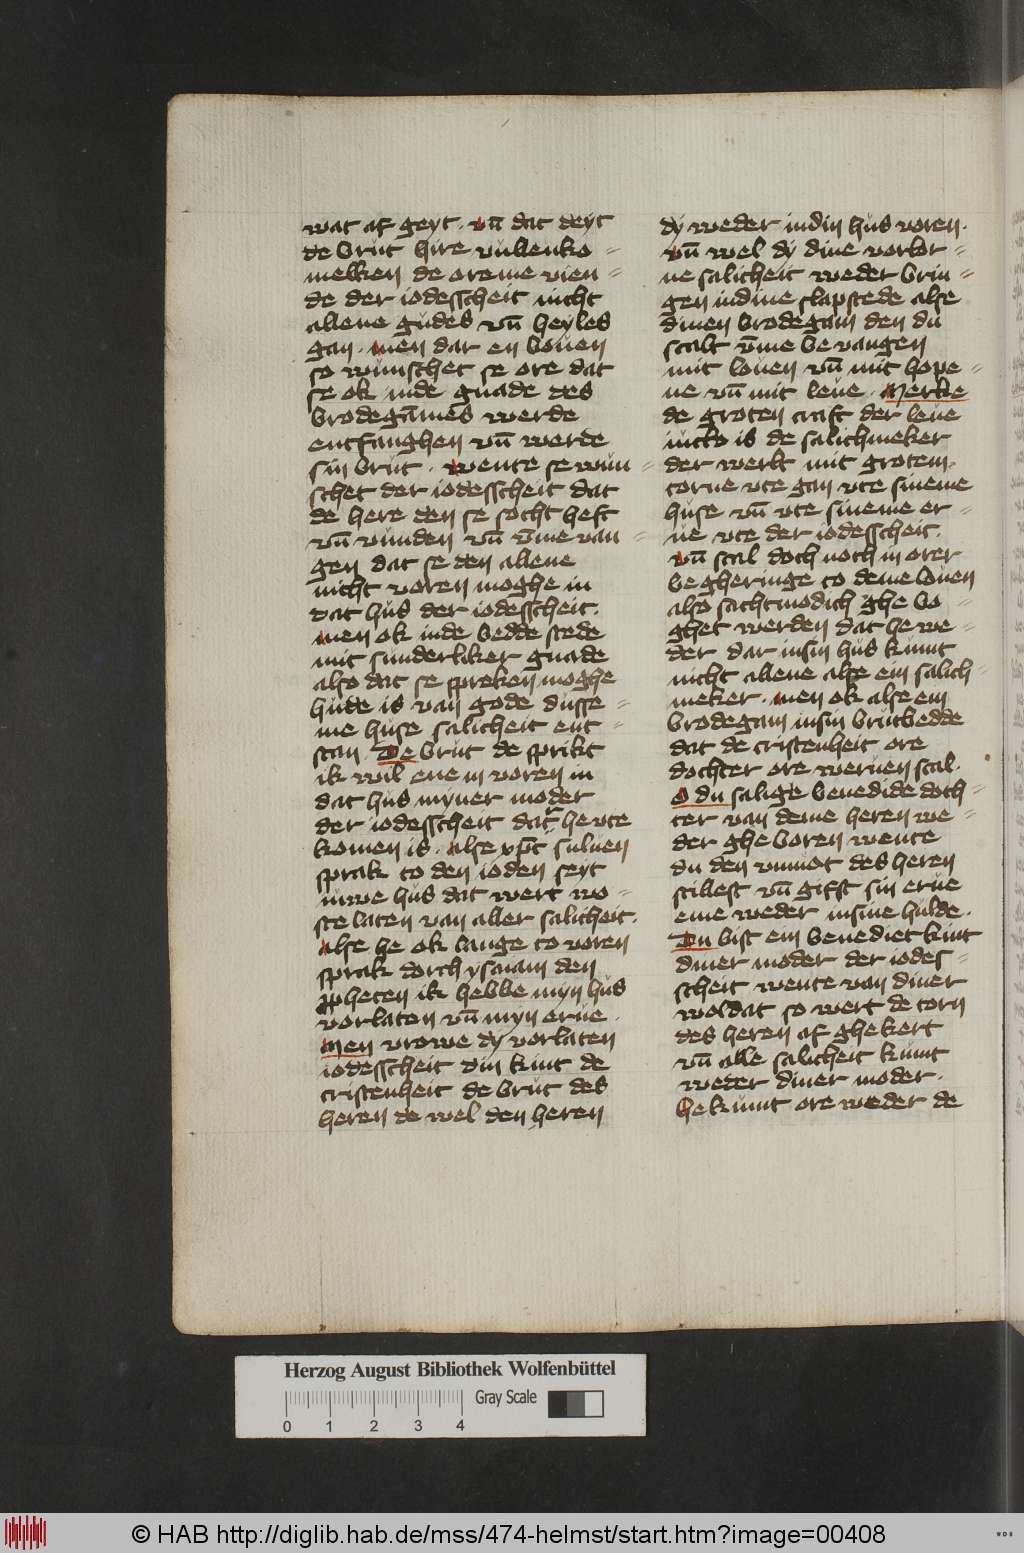 wat af geyt · vn̄ dat deyt
de brut hire vullenko =
melken de oreme vien =
de der iodesscheit nicht
allene gudes vn̄ heyles
gan · men dar en bouen
so wunschet se ore dat
se ok inde gnade des
brodegāmes werde
entfanghen vn̄ werde
sin brut · wente se wun =
schet der iodesscheit dat
de here den se socht heft
vn̄ vunden vn̄ v̄me van =
gen dat se den allene
nicht voren moghe in
dat hus der iodesscheit ·
men ok inde bedde stede
mit sunderliker gnade
also dat se spreken moghe
hude is van gode dusse =
me huse salicheit ent =
stan · De brut de sprikt
ik wil ene in voren in
dat hus myner moder
der iodesscheit dar he vte
komen is · alse xp̄c suluen
sprak to den ioden seyt
iuwe hus dat wert wo =
ste laten van aller salicheit ·
alse he ok lange to voren
sprak dorch ysaiam den
ꝓpheten ik hebbe myn hus
vorlaten vn̄ myn erue ·
Men vrowe dy vorlaten
iodesscheit din kint de
cristenheit de brut des
heren de wel den heren
dy weder indin hus voren ·
vn̄ wel dy dine vorlor =
ne salicheit weder brin =
gen indine slapstede alse
dinen brodegam den du
scalt v̄me bevangen
mit louen vn̄ mit hope =
ne vn̄ mit leue · Merke
de groten craft der leue
iucto is de salichmeker
der werlt mit grotem
torne vte gan vte sineme
huse vn̄ vte sineme er =
ue vte der iodesscheit ·
vn̄ scal doch noch in orer
begheringe to deme louen
also sachtmodich ghe bo =
ghet werden dat he we =
der dar insin hus kumt
nicht allene alse ein salich =
meker · men ok alse ein
brodegam insin brutbedde
dat de cristenheit ore
dochter ore weruen scal ·
O du salige benedide doch =
ter van deme heren we =
der ghe boren wente
du den vnmot des heren
stillest vn̄ gifst sin erue
eme weder insine hulde ·
Du bist ein benediet kint
diner moder der iodes =
scheit wente van diner
woldat so wert de torn
des heren af ghekert
vn̄ alle salicheit kumt
weder diner moder ·
he kumt ore weder de
Herzog August Bibliothek Wolfenbüttel
Gray Scale
0 1 2 3 4
© HAB http://diglib.hab.de/mss/474-helmst/start.htm?image=00408